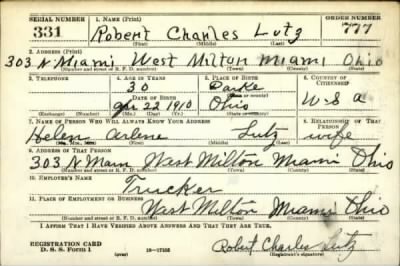 SERIAL NUMBER 1. NAME (Print) ORDER NUMBER
331 Robert Charles Lutz 777
(First) (Middle) (Last)
2. ADDRESS (Print)
303 N Miami West Milton Miami Ohio
(Number and street or R. F. D. number) (Town) (County) (State)
3. TELEPHONE 4. AGE IN YEARS 5. PLACE OF BIRTH 6. COUNTRY OF CITIZENSHIP
30 Darke
(Town or county)
DATE OF BIRTH
22 1910 Ohio U-S a
(Mo.) (Day) (Yr.) (State or country)
7. NAME OF PERSON WHO WILL ALWAYS KNOW YOUR ADDRESS 8. RELATIONSHIP OF THAT PERSON
Helen Arlene Lutz wife
(Mr., Mrs., Miss) (First) (Middle) (Last)
9. ADDRESS OF THAT PERSON
303 N Miam West Milton Miami Ohio
(Number and street or R. F. D. number) (Town) (County) (State)
10. EMPLOYER'S NAME
Trucker
11. PLACE OF EMPLOYMENT OR BUSINESS
West Milton Miami Ohio
(Number and street or R. F. D. number) (Town) (County) (State)
I AFFIRM THAT I HAVE VERIFIED ABOVE ANSWERS AND THAT THEY ARE TRUE.
REGISTRATION CARD
D. S. S. Form 1 (over) Robert Charles Lutz
(Registrant's signature)